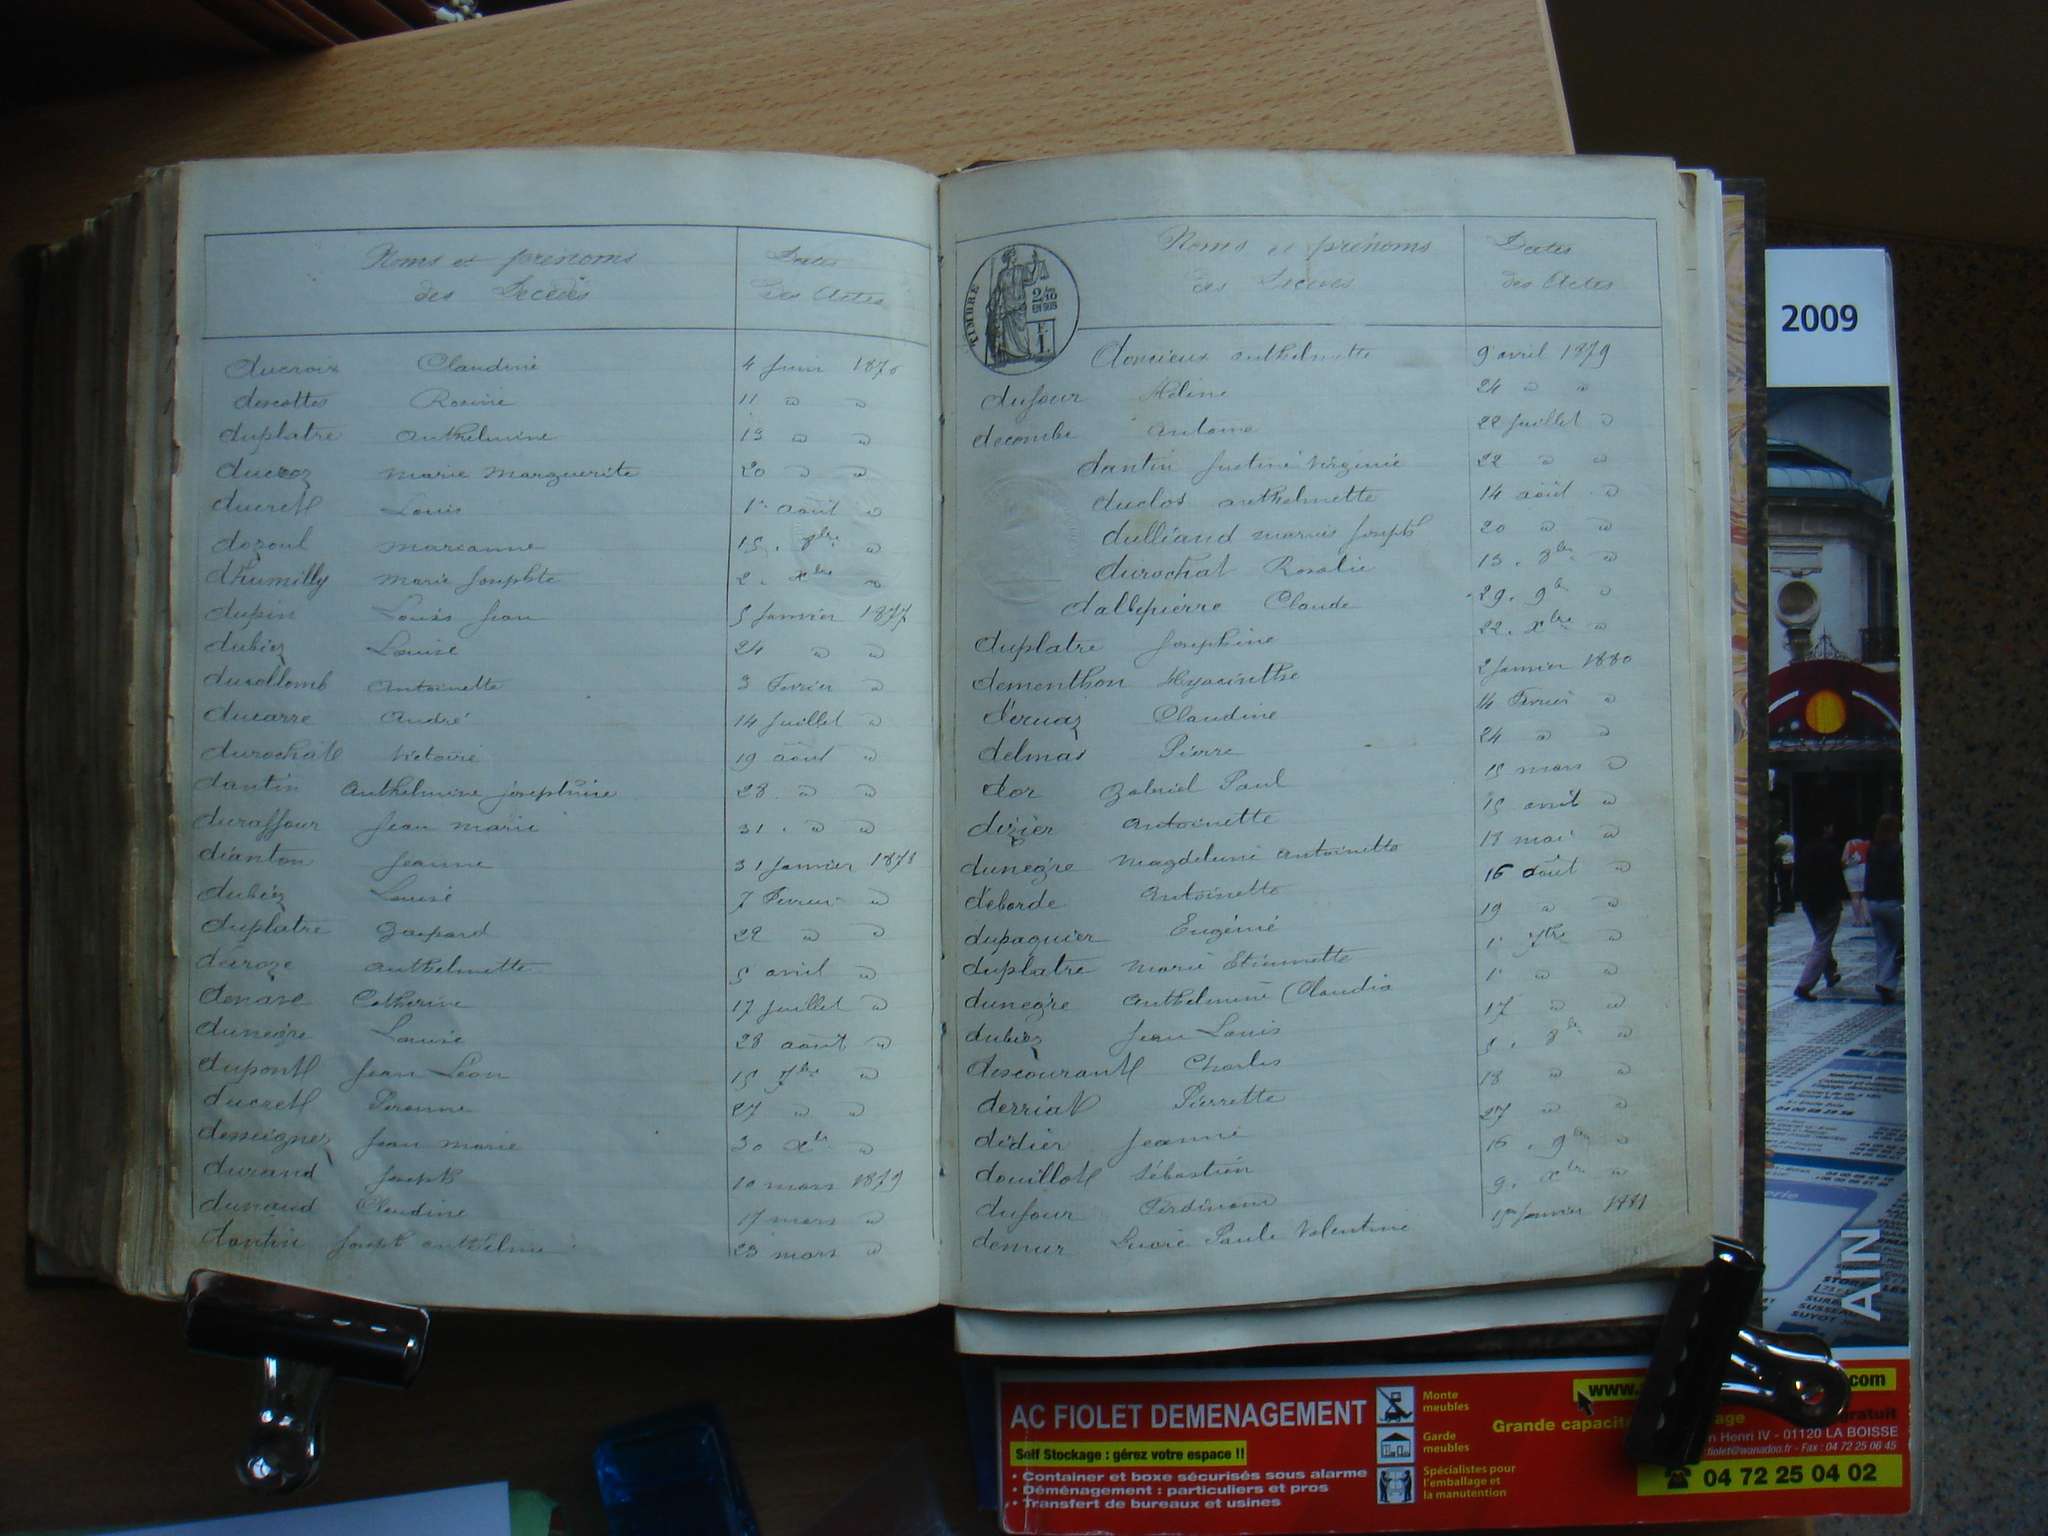 Noms et prénoms
des Décédés
Dates
Des Actes
ducroix Claudine 4 juin 1876
descottes Rosine 11 " "
duplatre anthelmine 13 " "
ducroz marie marguerite 20 " "
ducret Louis 1er août "
dozoul marianne 15. "
d'humilly marie Josephte 2. xbre "
dupin Louis Jean 5 janvier 1877
dubiez Louise 24 " "
ducollomb antoinette 3 Fevrier "
ducarre andré 14 juillet "
durochat victoire 19 août "
dantin anthelmine joséphine 28 " "
duraffour Jean marie 31. " "
dianton Jeanne 31 janvier 1878
dubiez Louise 7 Fevrier "
duplatre gaspard 22 " "
décroze anthelmette 5 avril "
denave Catherine 17 juillet "
dunegre Louise 28 août "
dupont Jean Léon 15 7bre "
ducret Peronne 27 " "
desseignez Jean marie 30 xbre "
durand Joseph 10 mars 1879
dunaud Claudine 17 mars "
dantin Joseph anthelme 23 mars "
Noms et prénoms
des Décédés
Dates
des Actes
TIMBRE
EN SUS
domieux anthelmette 9 avril 1879
dufour 24 " "
decombe antoine 22 juillet "
dantin Justine Virginie 22 " "
duclos anthelmette 14 août "
dulliand marius Joseph 20 " "
durochat Rosalie 13. 8bre "
dallepierre Claude 29. 9bre "
duplatre Josephine 22. xbre "
dementhon Hyacinthe 2 janvier 1880
d'eruaz Claudine 14 Fevrier "
delmas Pierre 24 " "
dor gabriel Paul 15 mars "
dizier antoinette 15 avril "
dunegre magdeleine antoinette 13 mai "
déborde antoinette 16 août "
dupaquier Eugénie 19 " "
duplatre marie Etiennette 1er 7bre "
dunegre anthelmine Claudia 1er " "
dubiez Jean Louis 17 " "
descourant Charles 5. 8bre "
derriat Pierrette 18 " "
didier Jeanne 27 " "
douillot Sébastien 16. 9bre "
dufour Ferdinand 9. xbre "
demur Paule Valentine 1er janvier 1881
2009
AIN
AC FIOLET DEMENAGEMENT
Self Stockage : gérez votre espace !!
• Container et boxe sécurisés sous alarme
• Déménagement : particuliers et pros
• Transfert de bureaux et usines
Monte
meubles
Garde
meubles
Spécialistes pour
l'emballage et
la manutention
www.
.com
Grande capacité
gratuit
n Henri IV - 01120 LA BOISSE
fiolet@wanadoo.fr - Fax : 04 72 25 06 45
04 72 25 04 02